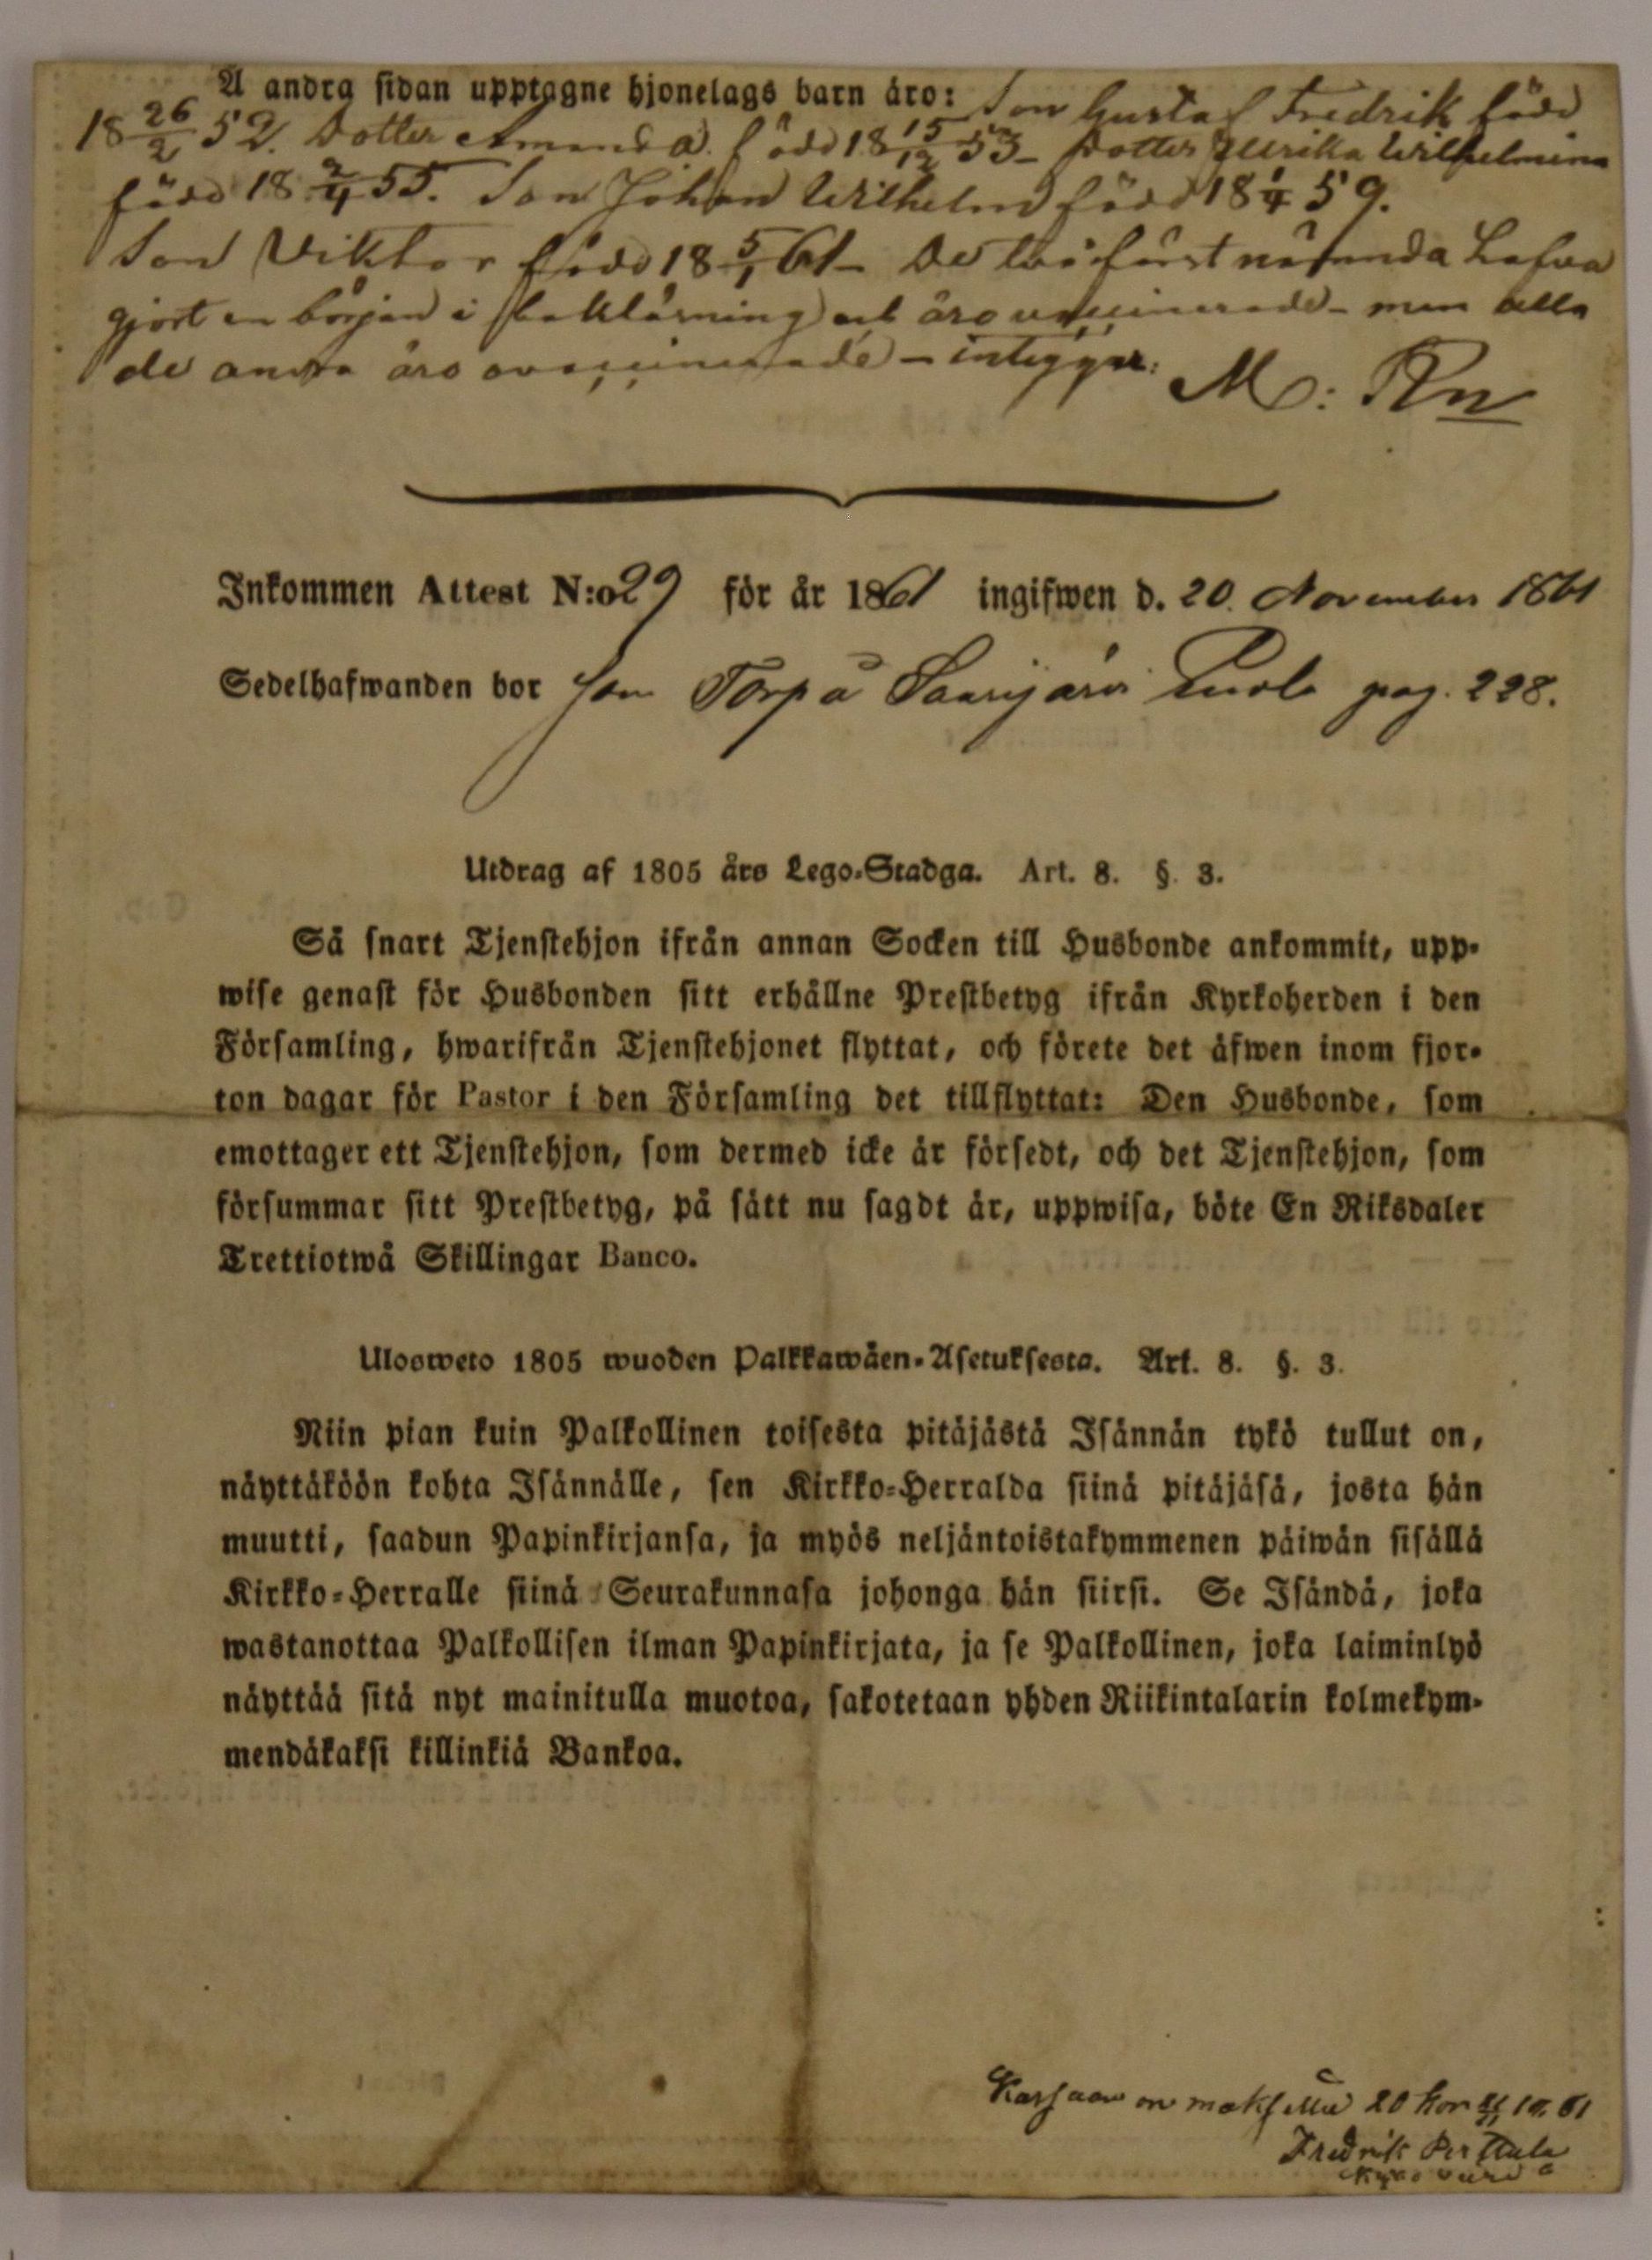 Å andra sidan upptagne hjonelags barn äro: Son Gustaf Fredrik född
18 26/2 52. Dotter Amanda född 18 15/12 53 - Dotter Ulrika Wilhelmina
född 18 2/4 55. Son Johan Wilhelm född 18 1/4 59.
Son Viktor född 18 5/1 61 - De två först nämnda hafva
gjort en början i äro vaccinerade - men alla
de andra äro ovaccinerade -
Inkommen Attest N:o 29 för år 1861 ingifwen d. 20. November 1861
Sedelhafwanden bor som Torp å Saarijärvi pag. 228.
Utdrag af 1805 års Lego-Stadga. Art. 8. §. 3.
Så snart Tjenstehjon ifrån annan Socken till Husbonde ankommit, upp-
wise genast för Husbonden sitt erhållne Prestbetyg ifrån Kyrkoherden i den
Församling, hwarifrån Tjenstehjonet flyttat, och förete det äfwen inom fjor-
ton dagar för Pastor i den Församling det tillflyttat: Den Husbonde, som
emottager ett Tjenstehjon, som dermed icke är försedt, och det Tjenstehjon, som
försummar sitt Prestbetyg, på sätt nu sagdt är, uppwisa, böte En Riksdaler
Trettiotwå Skillingar Banco.
Ulosweto 1805 wuoden Palkkawäen-Asetuksesta. Art. 8. §. 3.
Niin pian kuin Palkollinen toisesta pitäjästä Isännän tykö tullut on,
näyttäköön kohta Isännälle, sen Kirkko-Herralda siinä pitäjäsä, josta hän
muutti, saadun Papinkirjansa, ja myös neljäntoistakymmenen päiwän sisällä
Kirkko-Herralle siinä Seurakunnasa johonga hän siirsi. Se Isändä, joka
wastanottaa Palkollisen ilman Papinkirjata, ja se Palkollinen, joka laiminlyö
näyttää sitä nyt mainitulla muotoa, sakotetaan yhden Riikintalarin kolmekym-
mendäkaksi killinkiä Bankoa.
on maksettu 20 kop 61
Fredrik Perttula